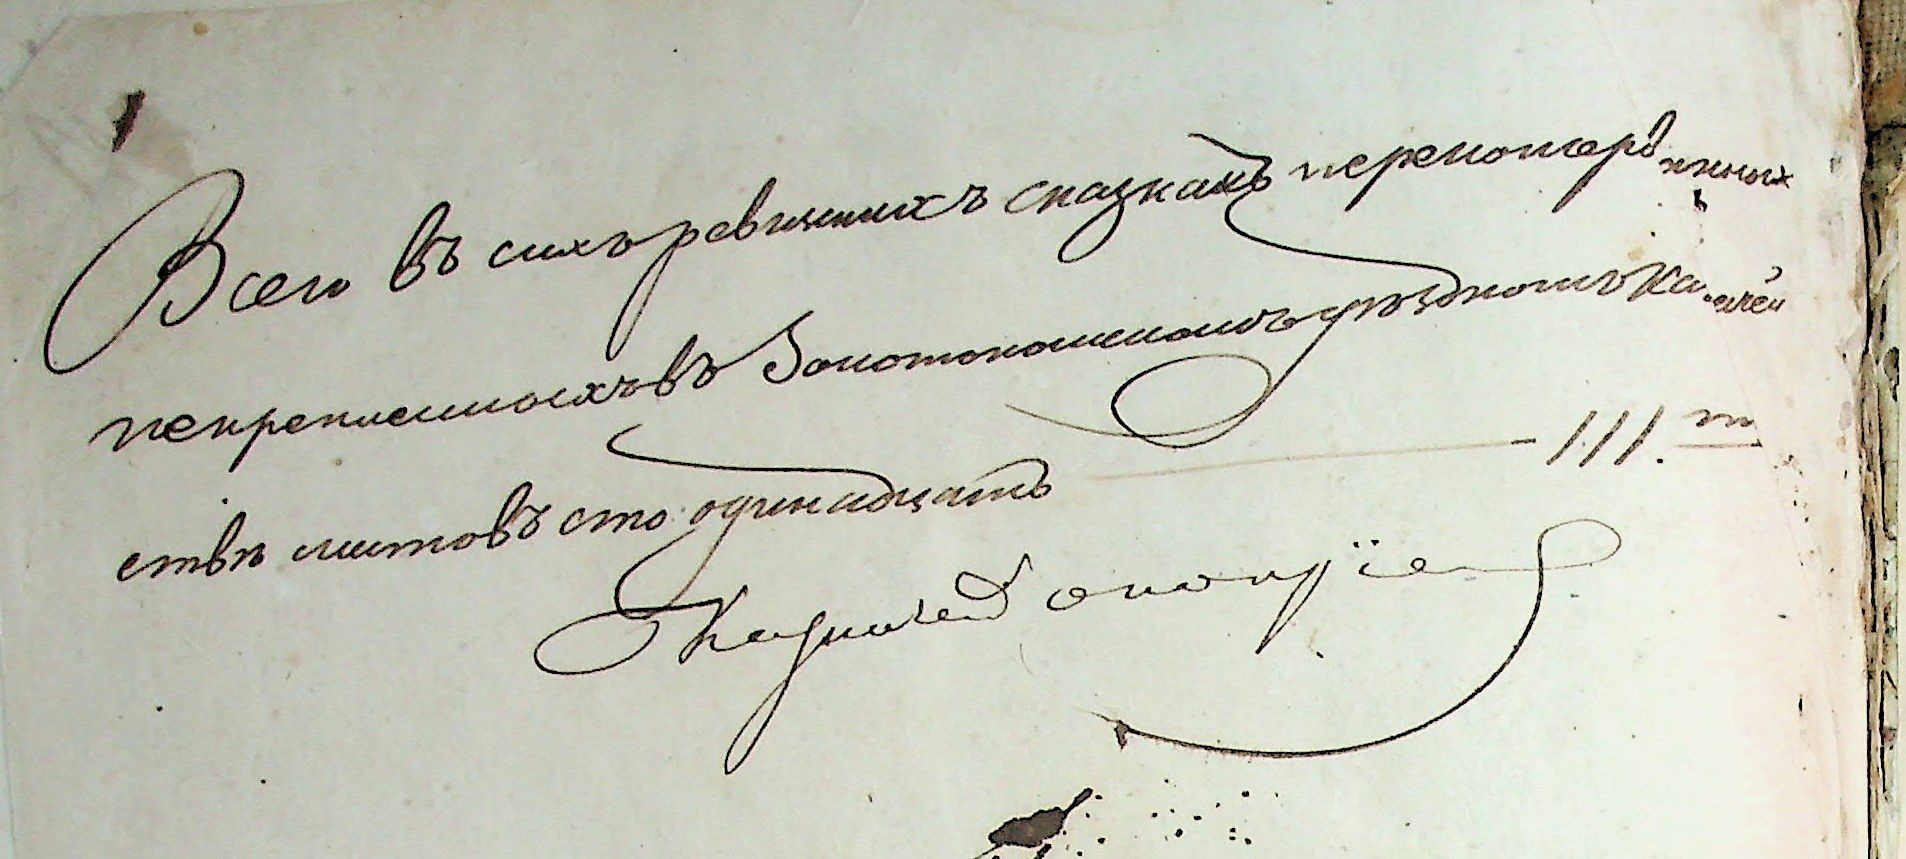 Всего въ сихъ ревизскихъ сказкахъ перенумеро
ванных
и скрепленныхъ въ Золотоношскомъ уѣздномъ Каз
начей
ствѣ листовъ сто одинадцать — 111.
Казначей